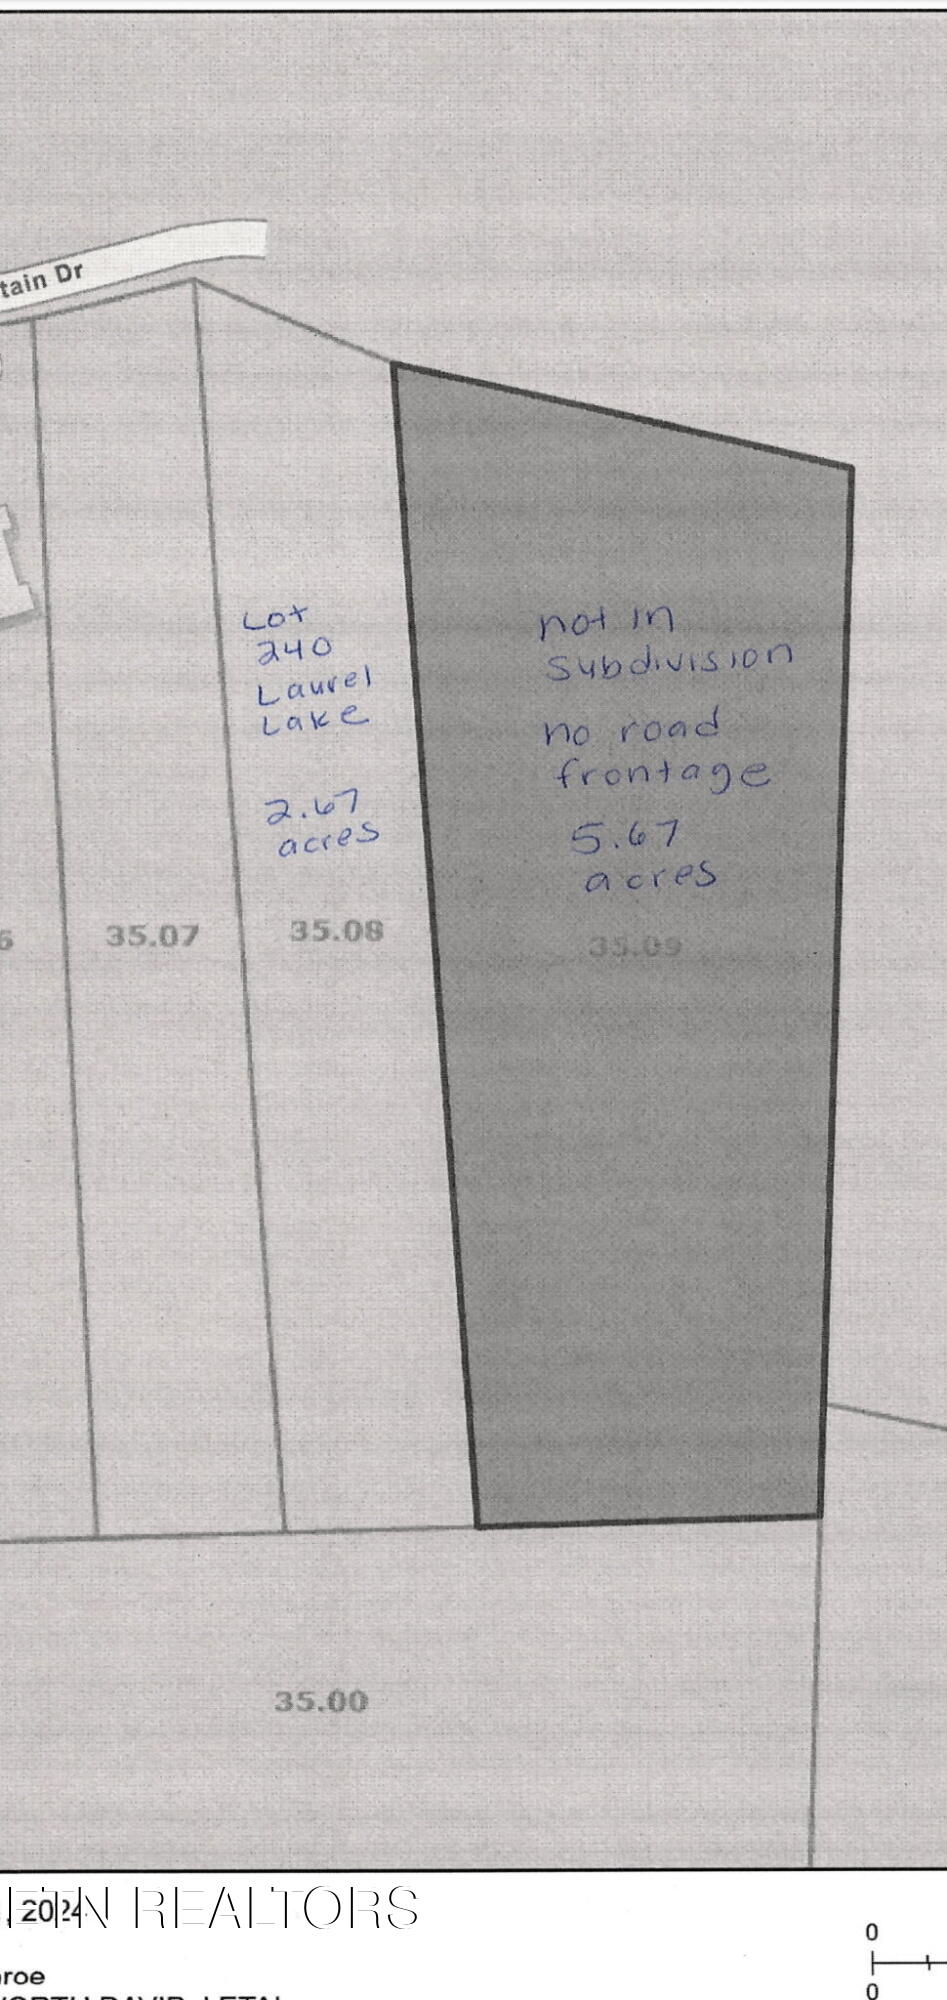 tain Dr
Lot
240
Laurel
Lake
2.67
acres
not in
Subdivision
no road
frontage
5.67
acres
6
35.07
35.08
35.09
35.00
, 2024
ETN REALTORS
0
0
roe